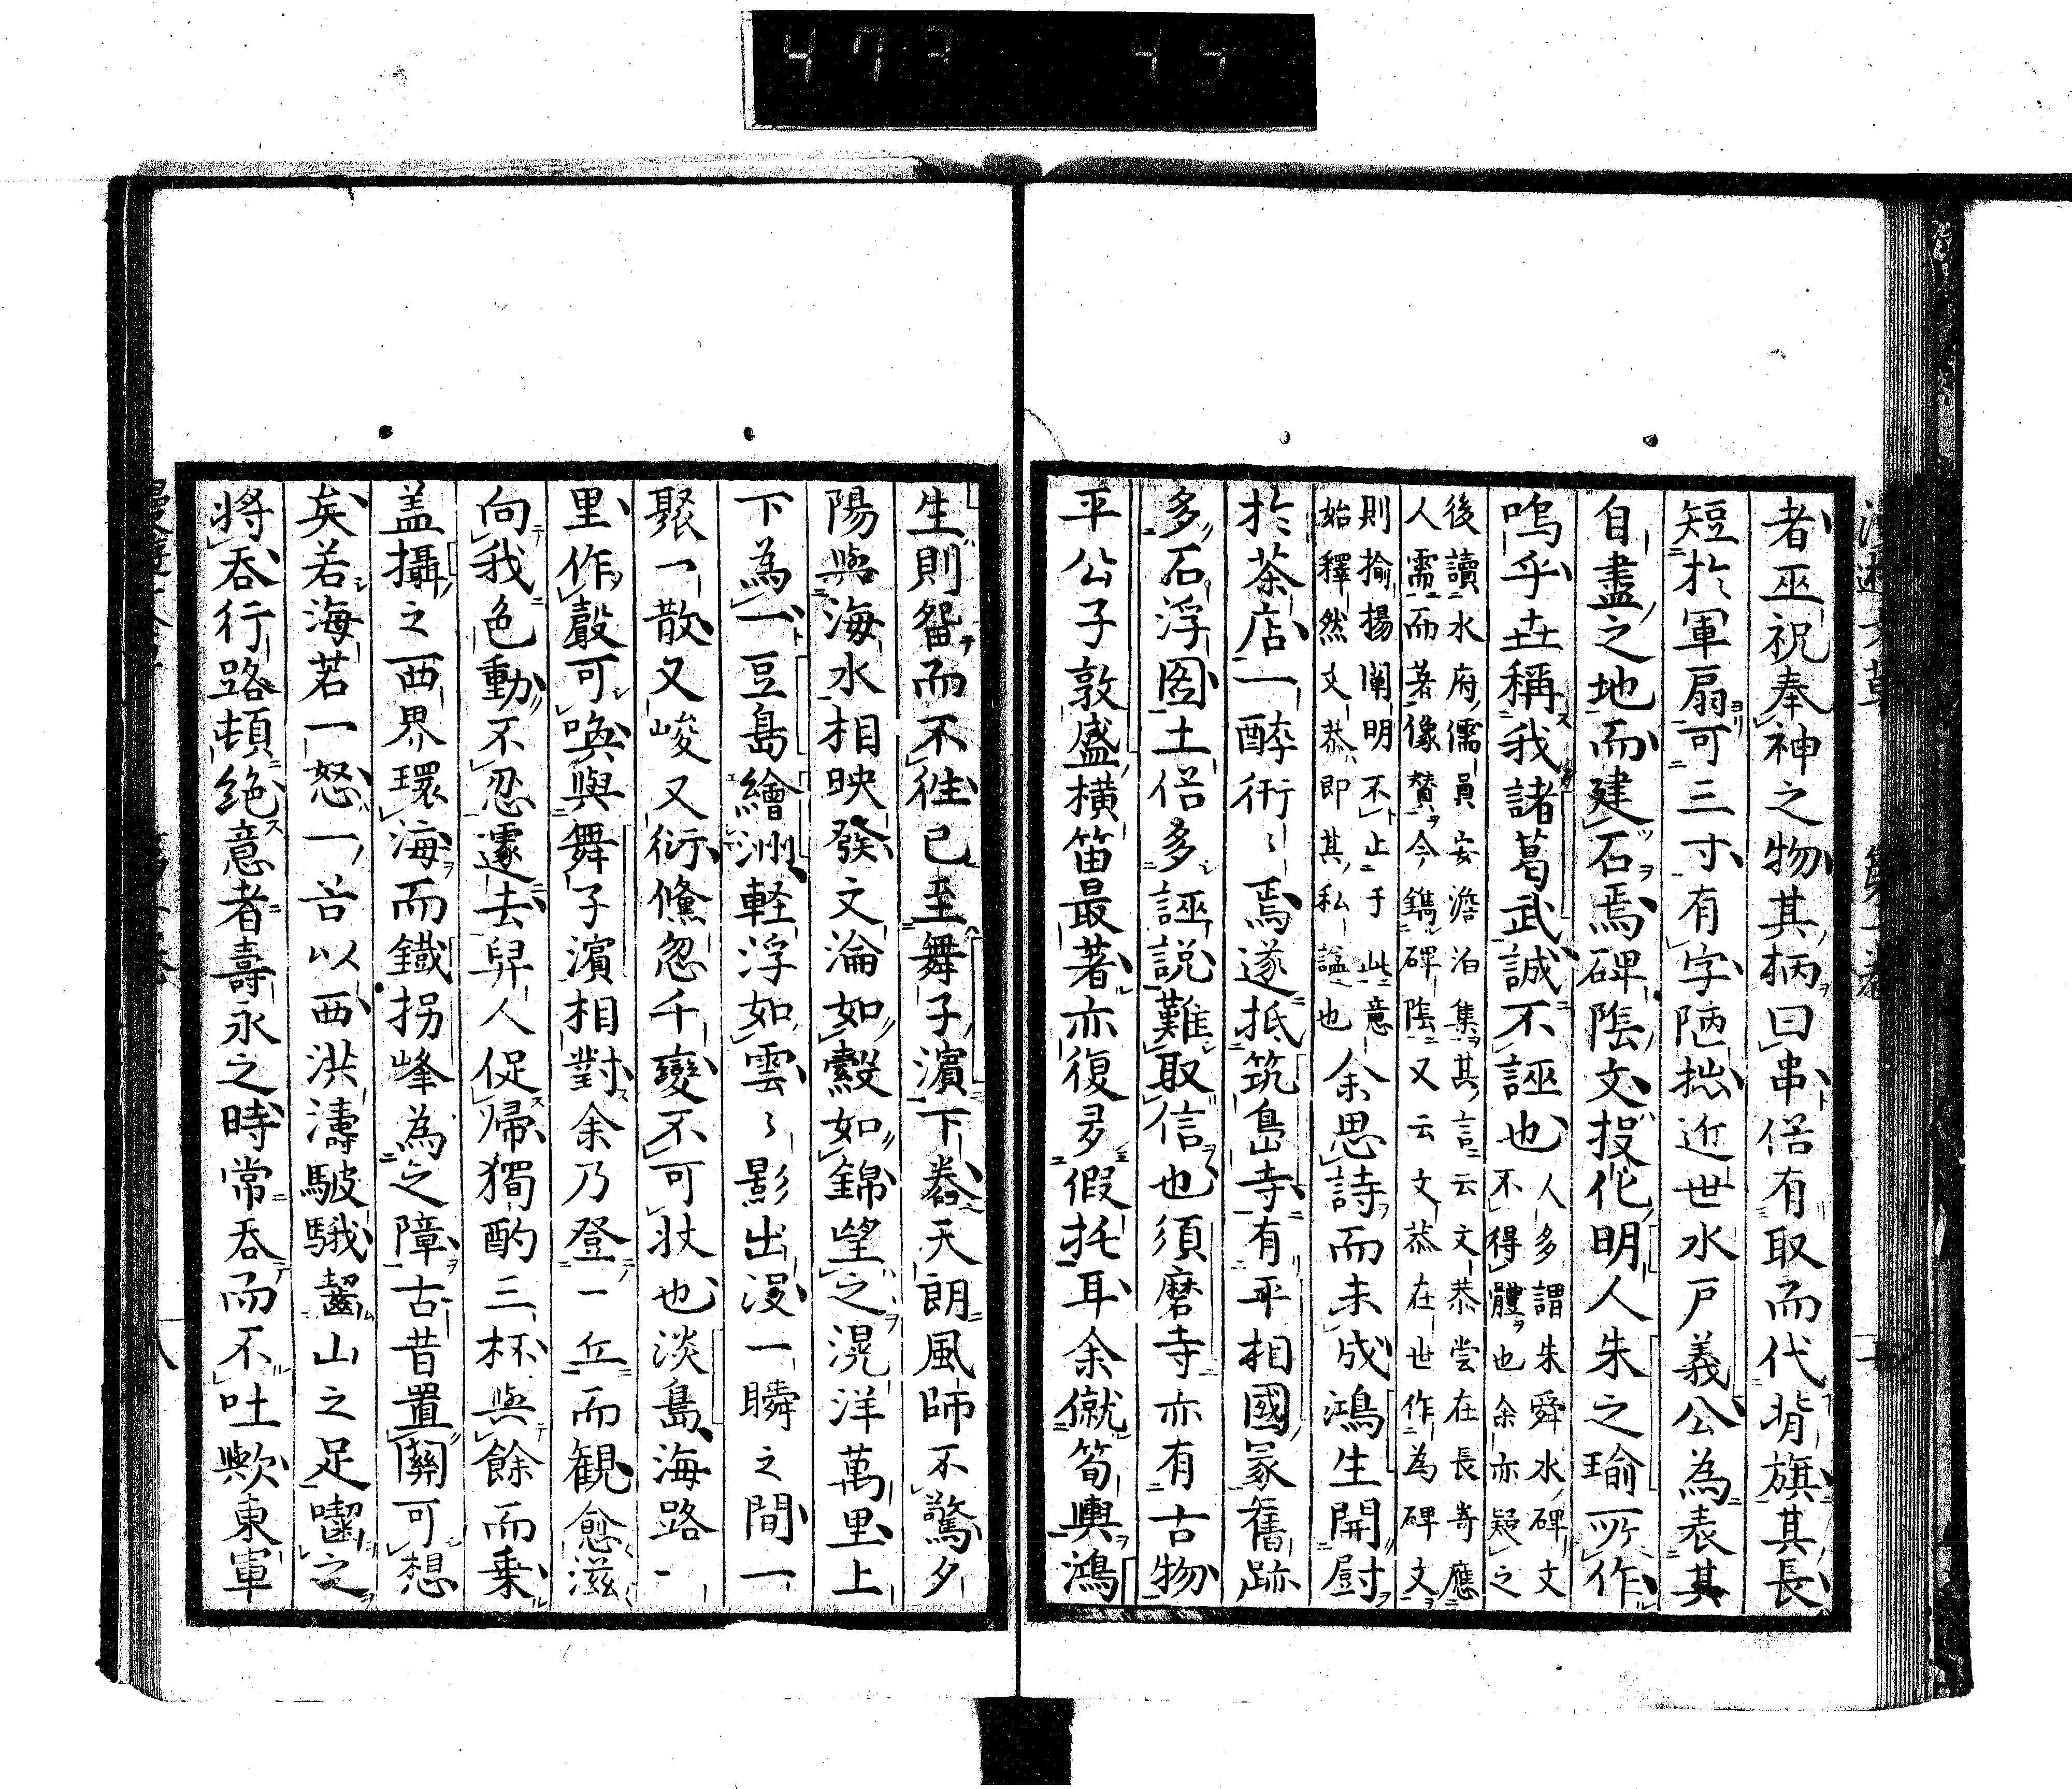 者巫祝奉神之物其柄曰串俗有取而代背旗其長
短於軍扇可三寸有字陋拙近世水戸義公為表其
自盡之地而建石焉碑陰文投化明人朱之瑜所作
嗚乎壵稱我諸葛武誠不誣也人多謂朱舜水碑文
不得體也余亦疑之
後讀水府儒員安澹泊集其言云文恭嘗在長嵜應
人需而著像贊今鐫碑陰又云文恭在世作為碑文
則揄揚闡明不止于此意
始釋然文恭即其私諡也余思詩而未成鴻生開厨
於茶店一醉衎〻焉遂抵筑島寺有平相國冢舊跡
多石浮圖土俗多誣説難取信也須磨寺亦有古物
平公子敦盛横笛最著亦復多假托耳余僦筍輿鴻
生則留而不徃已至舞子濵下。天朗風師不驚夕
陽與海水相映發文淪如縠如錦望之滉洋萬里上
下為一豆島繪洲軽浮如雲〻影出没一瞬之間一
聚一散又峻又衍倏忽千變不可狀也淡島海路一
里作聲可喚與舞子濵相對余乃登一丘而観愈滋
向我色動不忍遽去舁人促歸獨酌三杯與餘而乗
盖攝之西界環海而鐵拐峰為之障古昔置關可想
矣若海若一怒一吞以西洪濤駊騀齧山之足囓之
將吞行路頓絶意者壽永之時常吞而不吐歟東軍
472 45